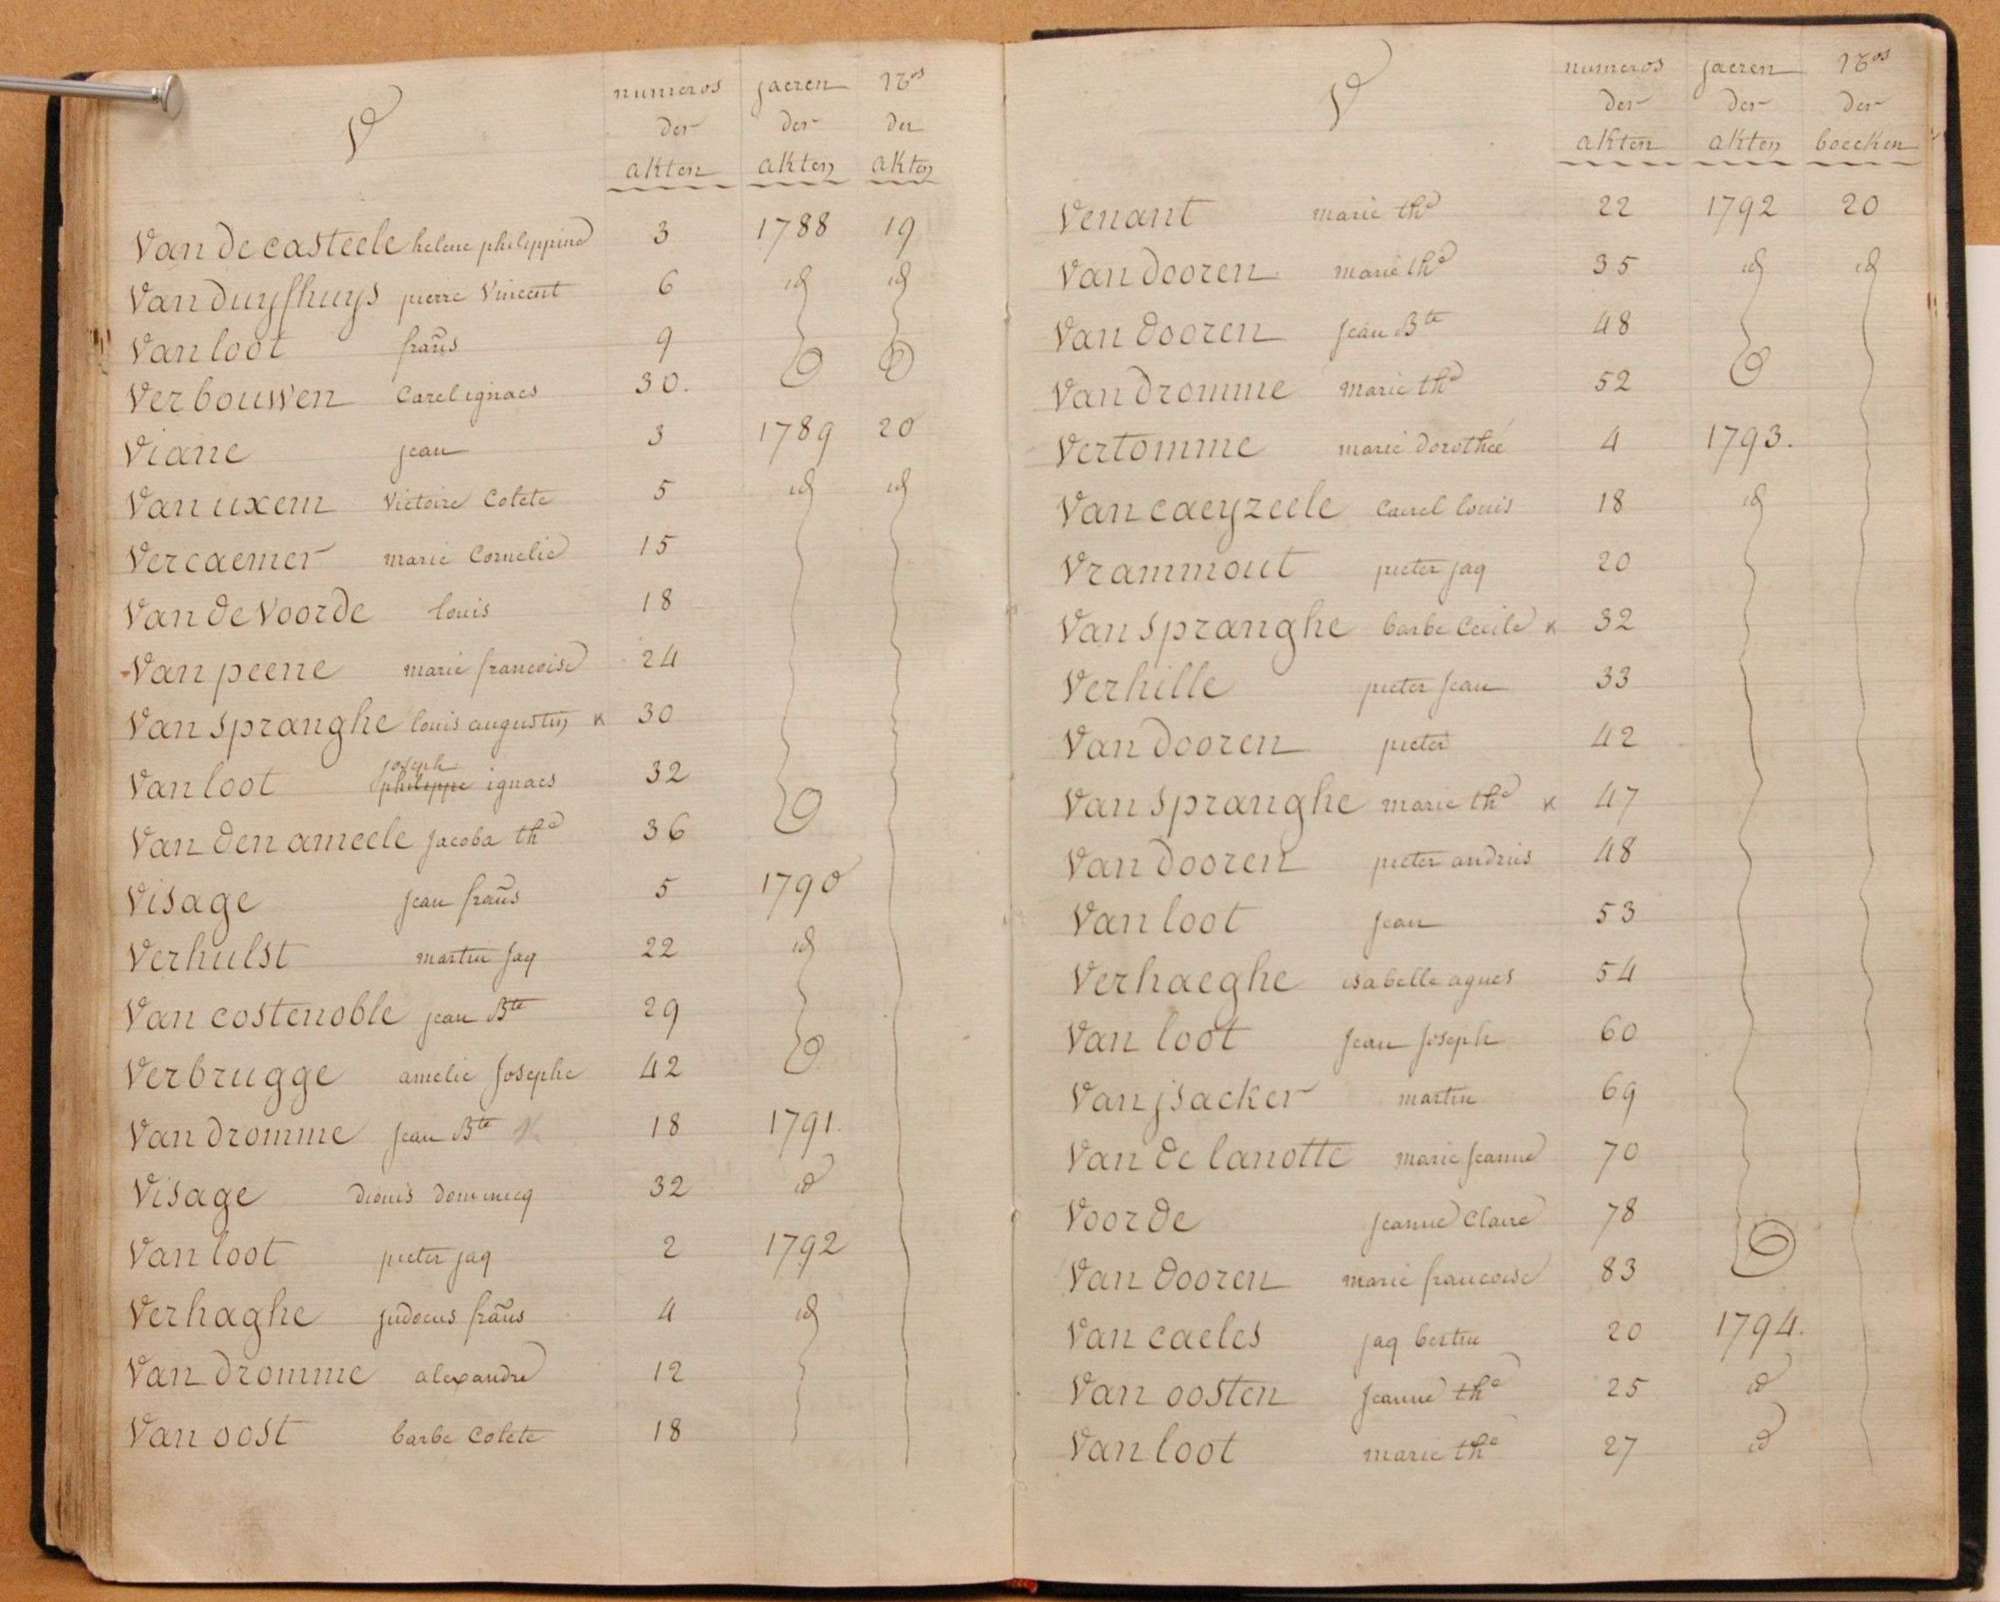 V
numeros jaeren Nos
der der der
akten akten akten
Van de casteele helene philippine 3 1788 19
Van duyfhuys pierre Vincent 6 id id
Van loot frans 9
Verbouwen Carel ignaes 30.
Viane jean 3 1789 20
Van uxem Victoire Colete 5 id id
Vercaemer marie Cornelie 15
Van de Voorde louis 18
Van peene marie francoise 24
Van spranghe louis augustin x 30
joseph
Van loot philippe ignaes 32
Van den ameele Jacoba the 36
Visage jean frans 5 1790
Verhulst martin jaq 22 id
Van costenoble jean Bte 29
Verbrugge amelie Josephe 42
Van dromme jean Bte x 18 1791.
Visage dionis dominicq 32 id
Van loot pieter jaq 2 1792
Verhaghe judocus frans 4 id
Van dromme alexandre 12
Van oost barbe Colete 18
V
numeros jaeren Nos
der der der
akten akten boecken
Venant marie the 22 1792 20
Van dooren marie the 35 id id
Van dooren Jean Bte 48
Van dromme marie the 52
Vertomme marie dorothée 4 1793.
Van caeyzeele Carel louis 18 id
Vrammout pieter jaq 20
Van spranghe barbe Cecile x 32
Verhille pieter Jean 33
Van dooren pieter 42
Van spranghe marie the x 47
Van dooren pieter andries 48
Van loot Jean 53
Verhaeghe isabelle agnes 54
Van loot Jean Joseph 60
Van jsacker martin 69
Van de lanotte marie Jeanne 70
Voorde jeanne Claire 78
Van dooren marie francoise 83
Van caeles jaq bertin 20 1794.
Van oosten Jeanne the 25 id
Van loot marie the 27 id